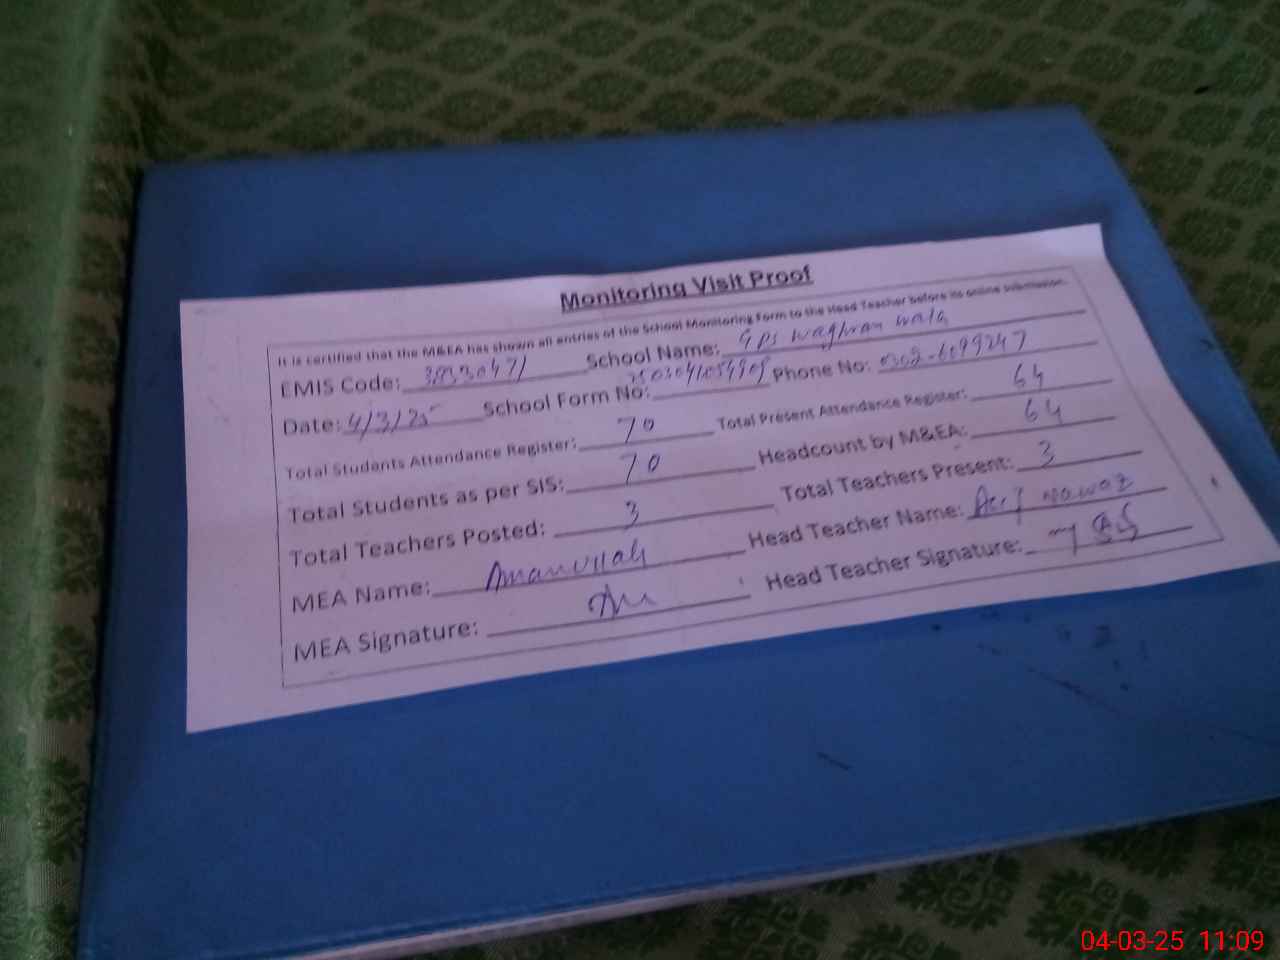 Monitoring Visit Proof
It is certified that the M&EA has shown all entries of the School Monitoring Form to the Head Teacher before its online submission.
EMIS Code: 38330471 School Name: GPS Waghran Wala
Date: 4/3/25 School Form No: Phone No: 0302-6099247
Total Students Attendance Register: 70 Total Present Attendance Register: 64
Total Students as per SIS: 70 Headcount by M&EA: 64
Total Teachers Posted: 3 Total Teachers Present: 3
MEA Name: Amanullah Head Teacher Name: Nawaz
MEA Signature: Head Teacher Signature:
04-03-25 11:09